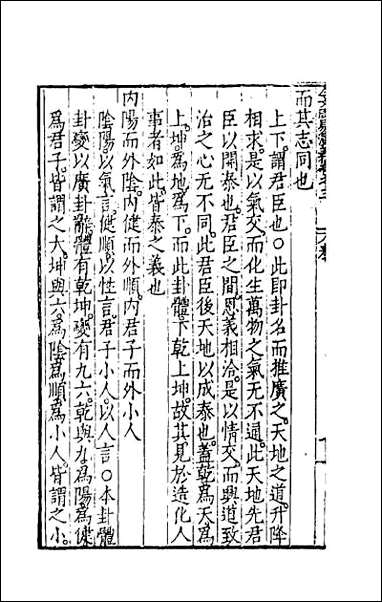 而其志同也
上下。謂君臣也○此即卦名而推廣之。天地之道。升降
相求。是以氣交而化生萬物之氣无不通。此天地先君
臣以開泰也。君臣之閒。恩義相洽。是以情交。而興道致
治之心无不同。此君臣後天地以成泰也。蓋乾爲天爲
上。坤爲地爲下。而此卦體下乾上坤。故其見於造化人
事者如此。皆泰之義也
內陽而外陰。內健而外順。內君子而外小人
陰陽。以氣言。健順。以性言。君子小人。以人言○本卦體
卦變以廣卦辭體有乾坤。變有九六。乾與九爲陽爲健
爲君子。皆謂之大。坤與六爲陰爲順爲小人。皆謂之小。